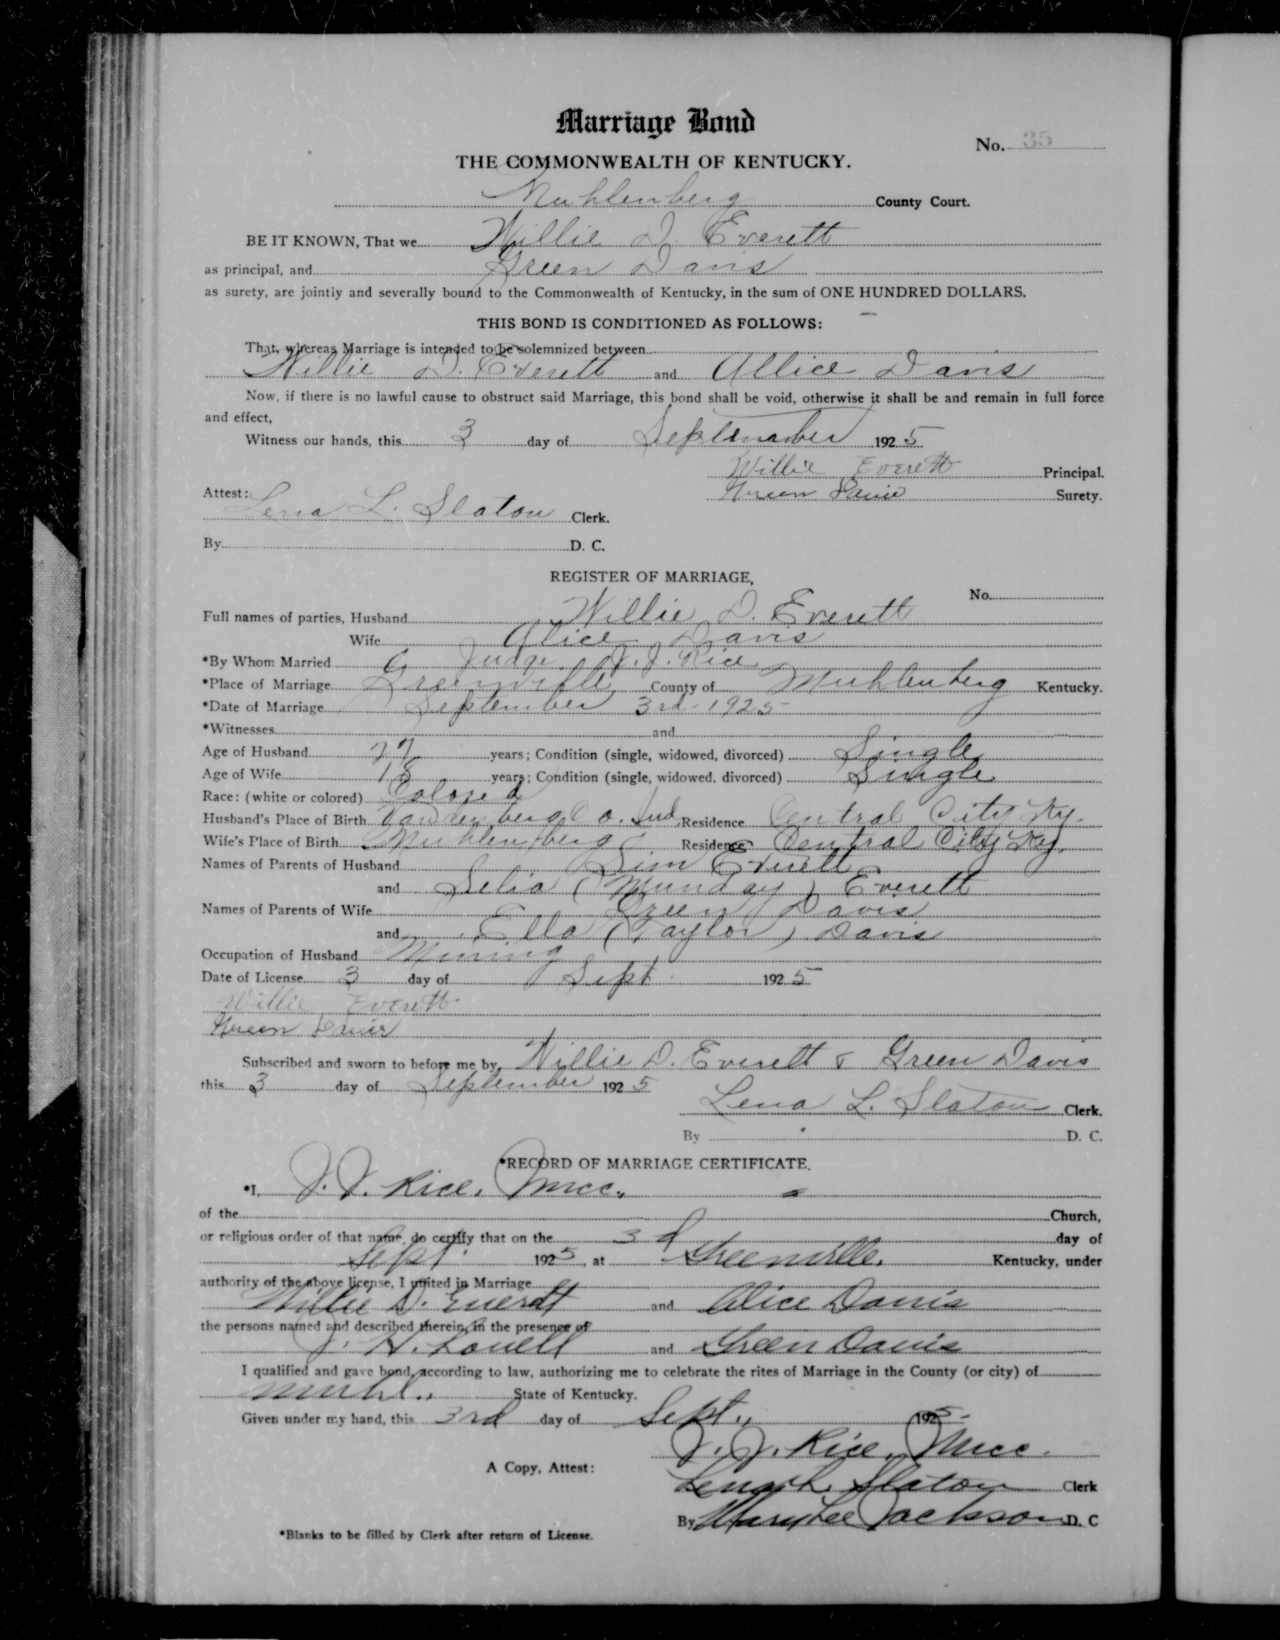 Marriage Bond
No. 35
THE COMMONWEALTH OF KENTUCKY.
Muhlenberg County Court.
BE IT KNOWN, That we Willie D. Everett
as principal, and Green Davis
as surety, are jointly and severally bound to the Commonwealth of Kentucky, in the sum of ONE HUNDRED DOLLARS.
THIS BOND IS CONDITIONED AS FOLLOWS:
That, whereas Marriage is intended to be solemnized between
Willie D. Everett and Allice Davis
Now, if there is no lawful cause to obstruct said Marriage, this bond shall be void, otherwise it shall be and remain in full force
and effect,
Witness our hands, this 3 day of September 1925
Willie Everett Principal.
Green Davis Surety.
Attest:
Lena L. Slaton Clerk.
By D. C.
REGISTER OF MARRIAGE,
No.
Full names of parties, Husband Willie D. Everett
Wife Alice Davis
*By Whom Married Judge J. J. Rice
*Place of Marriage Greenville County of Muhlenberg Kentucky.
*Date of Marriage September 3rd-1925-
*Witnesses and
Age of Husband 27 years; Condition (single, widowed, divorced) Single
Age of Wife 18 years; Condition (single, widowed, divorced) Single
Race: (white or colored) Colored
Husband's Place of Birth Vanderberg Co. Ind. Residence Central City Ky.
Wife's Place of Birth Muhlenberg Residence Central City Ky.
Names of Parents of Husband Sim Everett
and Selia (Munday) Everett
Names of Parents of Wife Green Davis
and Ella (Taylor) Davis
Occupation of Husband Mining
Date of License 3 day of Sept 1925
Willie Everett
Green Davis
Subscribed and sworn to before me by Willie D. Everett & Green Davis
this 3 day of September 1925
Lena L. Slaton Clerk.
By D. C.
*RECORD OF MARRIAGE CERTIFICATE.
*I, J. J. Rice, Jmcc.
of the Church,
or religious order of that name, do certify that on the 3d day of
Sept. 1925, at Greenville, Kentucky, under
authority of the above license, I united in Marriage
Willie D. Everett and Alice Davis
the persons named and described therein, in the presence of
J. H. Lovell and Green Davis
I qualified and gave bond, according to law, authorizing me to celebrate the rites of Marriage in the County (or city) of
Muhl., State of Kentucky.
Given under my hand, this 3rd day of Sept., 1925-
J. J. Rice, Jmcc.
A Copy, Attest:
Lena L. Slaton Clerk
By Mary Lee Jackson D. C
*Blanks to be filled by Clerk after return of License.